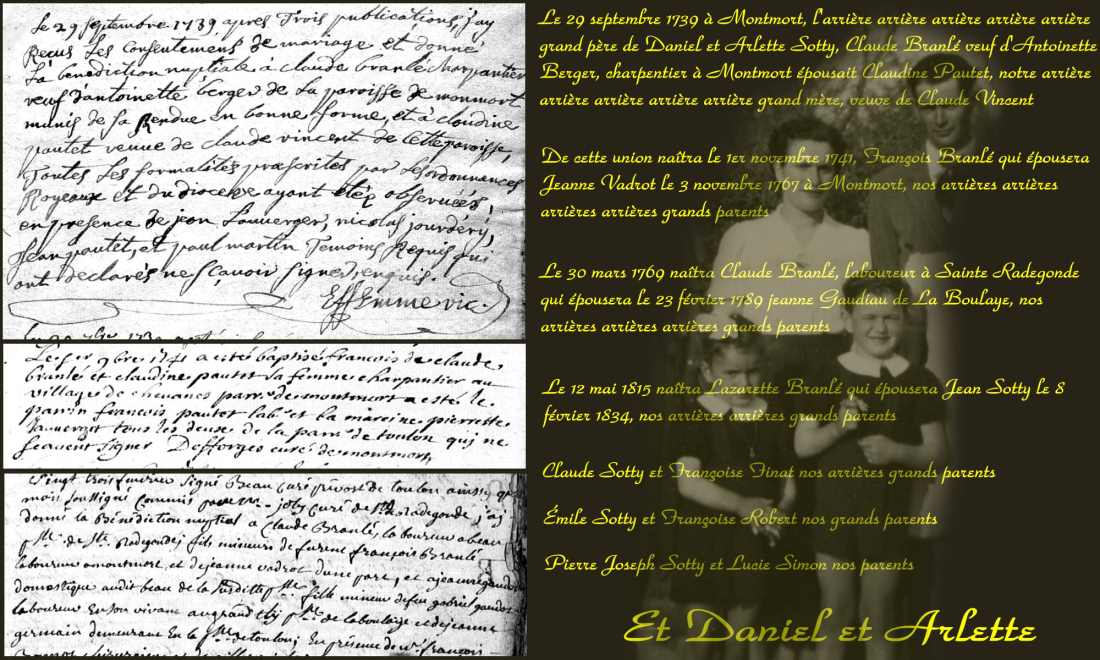 le 29 septembre 1739 apres Trois publications, j'ay
Reçus Les Consentemens de mariage et donné
La benediction nuptiale à claude branlé charpantier
veuf d'antoinette berger de La paroisse de monmort
munis de sa Rendue en bonne forme, et à claudine
pautet veuve de claude vincent de cette paroisse,
Toutes Les formalités præscrites par Les ordonnances
Royeaux et du diocese ayant étéz observées,
en presence de jean Lauverger, nicolas jourdéry,
Jean pautet, et paul martin Temoins Requis qui
ont déclarés ne sçavoir signer, enquis.
Emme vic.
Le 1er 9bre 1741 a eité baptisé francois de claude
branlé et claudine pautet sa femme charpantier au
village de chevanes parr. de montmort a esté le
parrin francois pautet lab. et la mareine pierrette
Lauverget tous les deux de la parr. de toulon qui ne
scauent signer Defforges curé de montmort
vingt trois fevrier signé Beau curé prevost de toulon ainsy que
moi soussigné commis joly curé de Ste Radegonde j'ai
donné la Bénédiction nuptial a Claude Branlé, laboureur a beau
de Ste Radegonde, fils mineurs de furent françois Branlé
laboureur amonmort, et dejeanne vadrot dune part, et ajeannegaudiau
domestique audit beau de la susditte fille mineur defeu gabriel gaudiau
laboureur En son vivant augrand de laboulaye et dejeanne
germain demeurant En la de toulon; En présence de françois
Le 29 septembre 1739 à Montmort, l'arrière arrière arrière arrière arrière
grand père de Daniel et Arlette Sotty, Claude Branlé veuf d'Antoinette
Berger, charpentier à Montmort épousait Claudine Pautet, notre arrière
arrière arrière arrière arrière grand mère, veuve de Claude Vincent
De cette union naîtra le 1er novembre 1741, François Branlé qui épousera
Jeanne Vadrot le 3 novembre 1767 à Montmort, nos arrières arrières
arrières arrières grands parents
Le 30 mars 1769 naîtra Claude Branlé, laboureur à Sainte Radegonde
qui épousera le 23 février 1789 jeanne Gaudiau de La Boulaye, nos
arrières arrières arrières grands parents
Le 12 mai 1815 naîtra Lazarette Branlé qui épousera Jean Sotty le 8
février 1834, nos arrières arrières grands parents
Claude Sotty et Françoise Finat nos arrières grands parents
Émile Sotty et Françoise Robert nos grands parents
Pierre Joseph Sotty et Lucie Simon nos parents
Et Daniel et Arlette